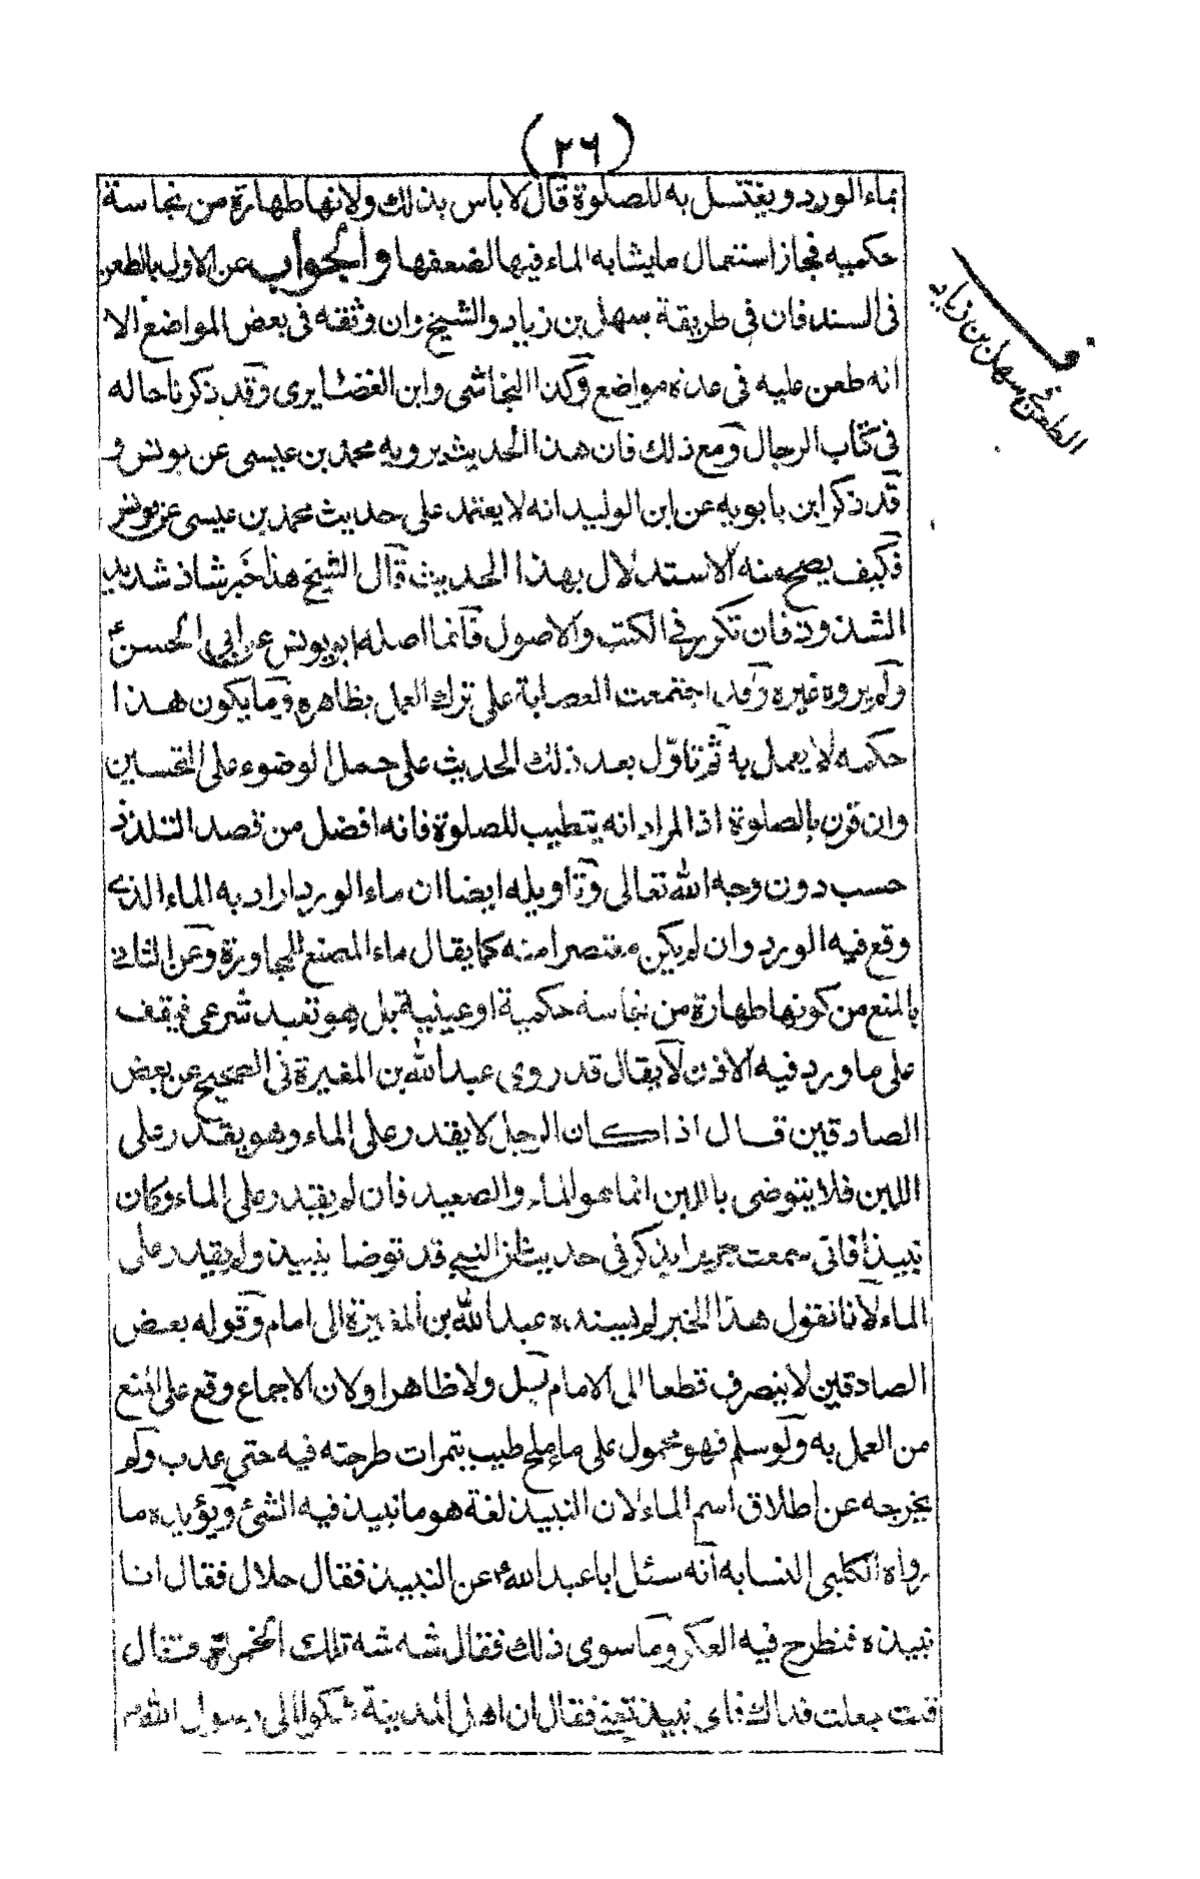 (٢٦)
بماء الورد ويغتسل به للصلوة قال لا باس بذلك ولانها طهارة من نجاسة
حكميه فجاز استعمال ما يشابه الماء فيها لضعفها والجواب عن الاول بالطعن
فى السند فان فى طريقة سهل بن زياد والشيخ وان وثقه فى بعض المواضع الا
انه طعن عليه فى عدة مواضع وكذا النجاشى وابن الغضايرى وقد ذكرنا حاله
فى كتاب الرجال ومع ذلك فان هذا الحديث يرويه محمد بن عيسى عن يونس و
قد ذكر ابن بابويه عن ابن الوليد انه لا يعتمد على حديث محمد بن عيسى عن يونس
فكيف يصح منه الاستدلال بهذا الحديث قال الشيخ هذا خبر شاذ شديد
الشذوذ فان تكرر فى الكتب والاصول فانما اصله ابو يونس عن ابى الحسن ع
ولم يروه غيره وقد اجتمعت العصابة على ترك العمل بظاهره وما يكون هذا
حكمه لا يعمل به ثم تاوّل بعد ذلك الحديث على حمل الوضوء على التحسين
وان قرن بالصلوة اذ المراد انه يتطيب للصلوة فانه افضل من قصد التلذذ
حسب دون وجه الله تعالى وتاويله ايضا ان ماء الورد اراد به الماء الذى
وقع فيه الورد وان لم يكن معتصرا منه كما يقال ماء المصنع للمجاورة وعن الثانى
بالمنع من كونها طهارة من نجاسة حكمية او عينية بل هو تعبد شرعى فيقف
على ما ورد فيه الاذن لا يقال قد روى عبد الله بن المغيرة فى الصحيح عن بعض
الصادقين قال اذا كان الرجل لا يقدر على الماء وهو يقدر على
اللبن فلا يتوضى باللبن انما هو الماء والصعيد فان لم يقدر على الماء وكان
نبيذا فانى سمعت حريزا يذكر فى حديث ان النبى قد توضا بنبيذ ولم يقدر على
الماء لانا نقول هذا الخبر لم يسنده عبد الله بن المغيرة الى امام وقوله بعض
الصادقين لا ينصرف قطعا الى الامام بل ولا ظاهرا ولان الاجماع وقع على المنع
من العمل به ولو سلم فهو محمول على ماء ملح طيب بتمرات طرحته فيه حتى عذب ولم
يخرجه عن اطلاق اسم الماء لان النبيذ لغة هو ما نبيذ فيه الشئ ويؤيده ما
رواه الكلبى النسابه انه سئل ابا عبد الله ع عن النبيذ فقال حلال فقال انا
نبيذه فنطرح فيه العكر وما سوى ذلك فقال شه شه تلك الخمرة فقال
قلت جعلت فداك فاى نبيذ تعنى فقال ان اهل المدينة شكوا الى رسول الله ص
الطعن فى سهل بن زياد